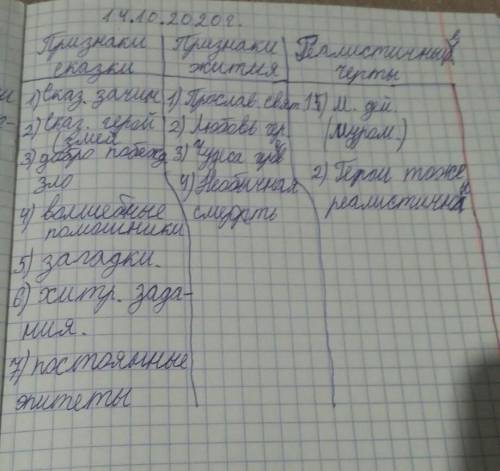 14.10.2020г.
Признаки сказки
1) Сказ. зачин
2) Сказ. герой
(змей)
3) добро побежд.
зло
4) волшебные
помошники
5) загадки.
6) хитр. зада-
ния.
7) постоянные
эпитеты
Признаки жития
1) Прослав. свят.
2) Любовь
3) Чудеса
4) Необычная
смерть
Реалистичные черты
1) М. дей.
(Муром.)
2) Герои тоже
реалистичны